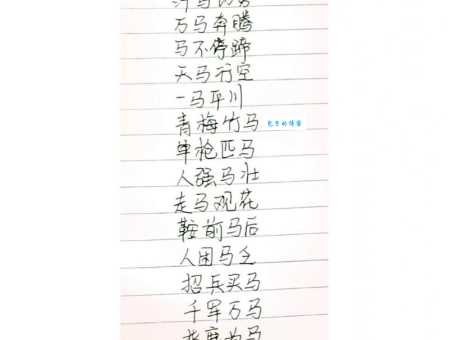 汗马功劳
万马奔腾
马不停蹄
天马行空
一马平川
青梅竹马
单枪匹马
人强马壮
走马观花
鞍前马后
人困马乏
招兵买马
千军万马
指鹿为马